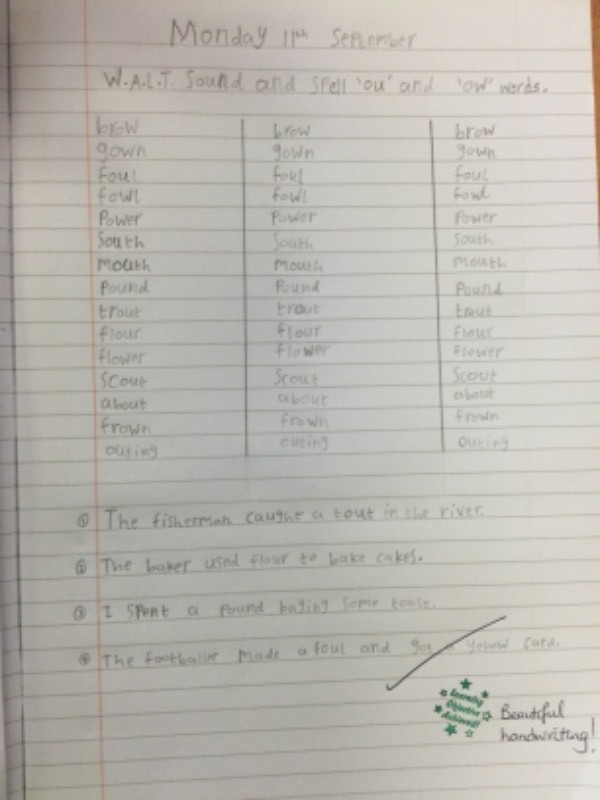 Monday 11th September
W.A.L.T. Sound and spell 'ou' and 'ow' words.
brow brow brow
gown gown gown
foul foul foul
fowl fowl fowl
Power Power Power
South South South
Mouth Mouth Mouth
Pound Pound Pound
trout trout trout
flour flour flour
flower flower flower
Scout Scout Scout
about about about
frown frown frown
outing outing outing
① The fisherman caught a tout in the river.
② The baker used flour to bake cakes.
③ I spent a pound buying some toast.
④ The footballer made a foul and got a yellow card.
Learning
Objective
Achieved!
Beautiful
handwriting!